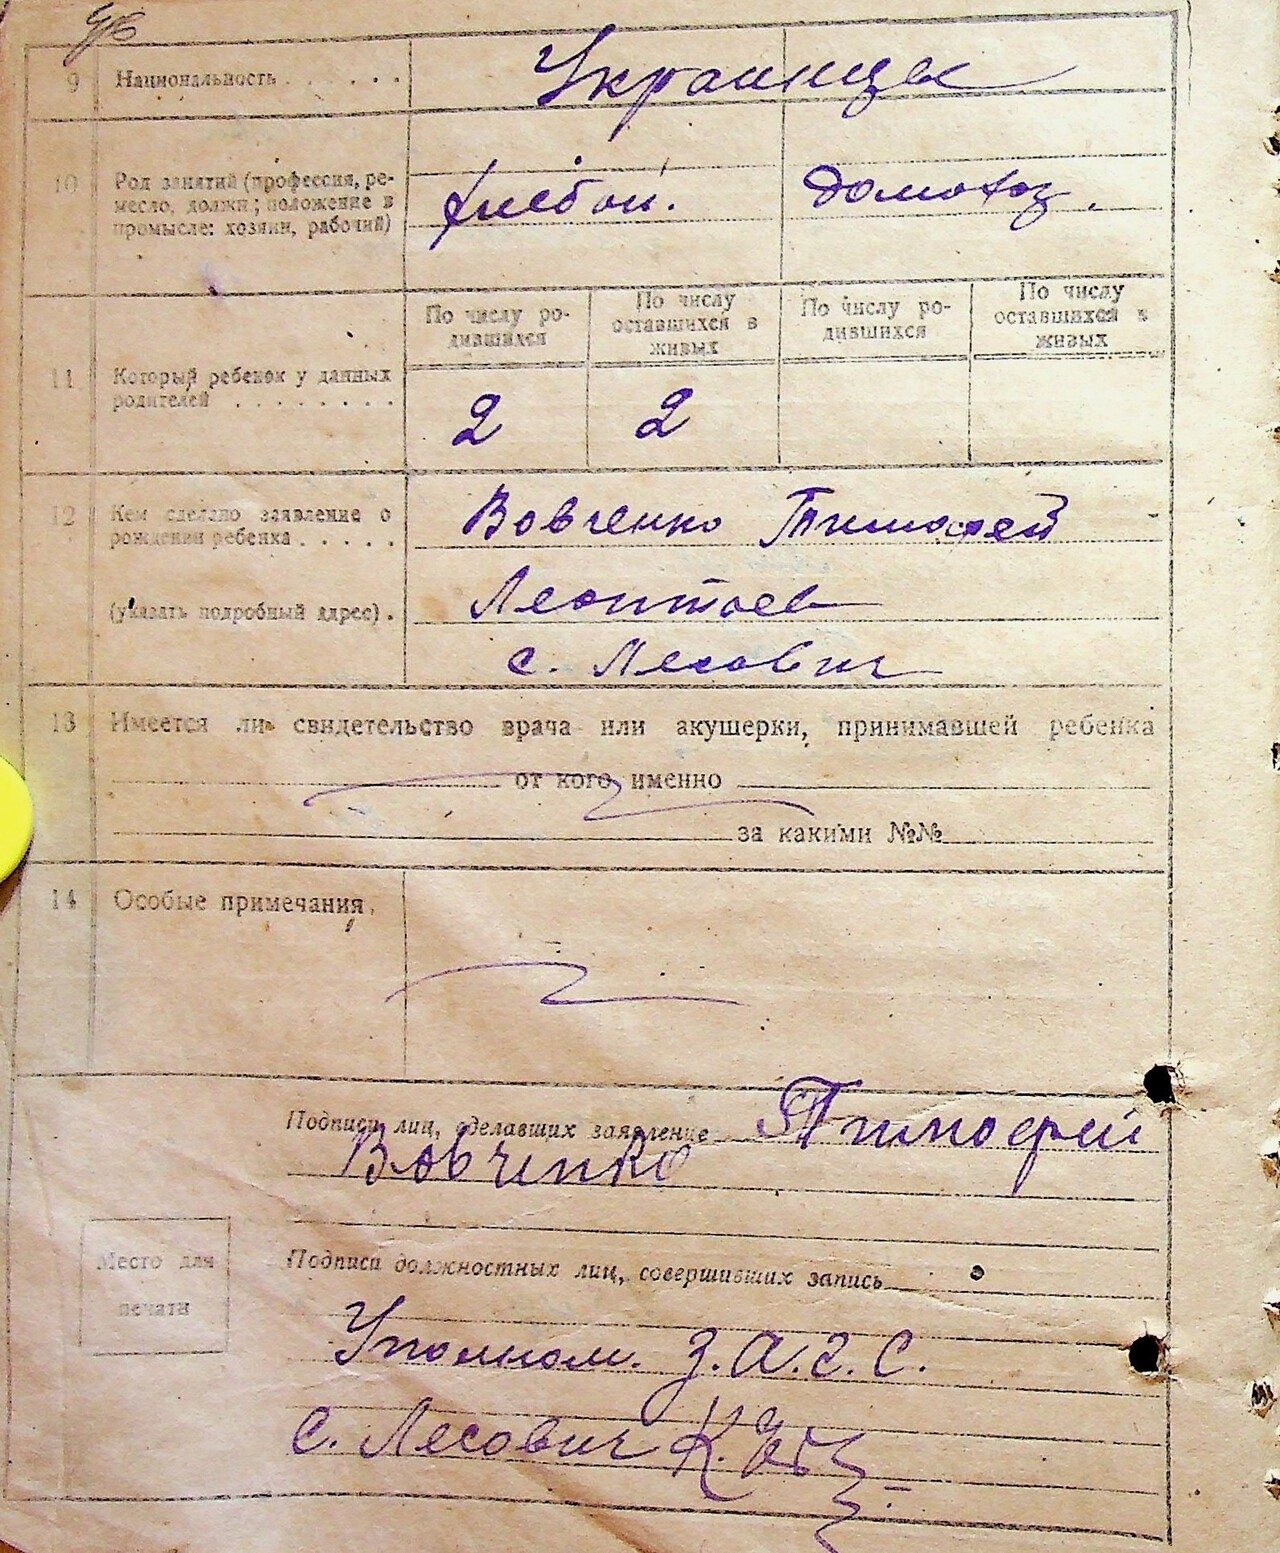 9 Национальность . . . . . Украинцы
10 Род занятий (профессия, ре-
месло, должн; положение в
промысле: хозяин, рабочий)
хлебоп. домохоз.
По числу ро-
дившихся
По числу
оставшихся в
живых
По числу ро-
дившихся
По числу
оставшихся в
живых
11 Который ребенок у данных
родителей . . . . . . . .
2 2
12 Кем сделано заявление о
рождении ребенка . . . . .
(указать подробный адрес) .
Вовченко Тимофей
Леонтьев
с. Лесович
13 Имеется ли свидетельство врача или акушерки, принимавшей ребенка
от кого именно
за какими №№
14 Особые примечания.
Подписи лиц, сделавших заявление Тимофей
Вовченко
Место для
печати
Подписи должностных лиц, совершивших запись
Уполном. З.А.Г.С.
С. Лесович К.